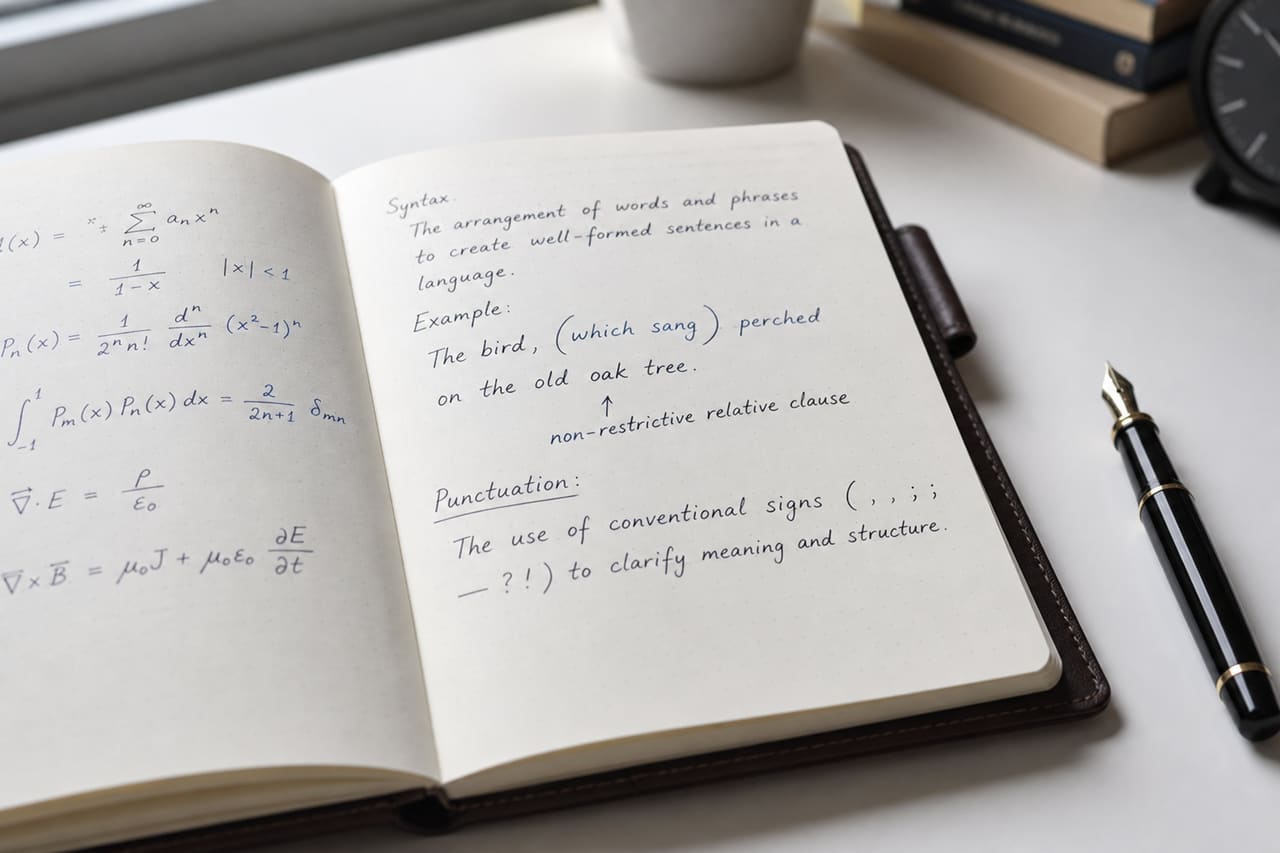 (x) = ∑_{n=0}^{∞} aₙxⁿ
= 1/(1-x) |x| < 1
Pₙ(x) = 1/(2ⁿn!) dⁿ/dxⁿ (x²-1)ⁿ
∫_{-1}^{1} Pₘ(x) Pₙ(x) dx = 2/(2n+1) δₘₙ
∇⃗·E = ρ/ε₀
∇̅×B̅ = μ₀J + μ₀ε₀ ∂E/∂t
Syntax.
The arrangement of words and phrases
to create well-formed sentences in a
language.
Example:
The bird, (which sang) perched
on the old oak tree.
↑
non-restrictive relative clause
Punctuation:
The use of conventional signs ( , , ; ;
— ? ! ) to clarify meaning and structure.